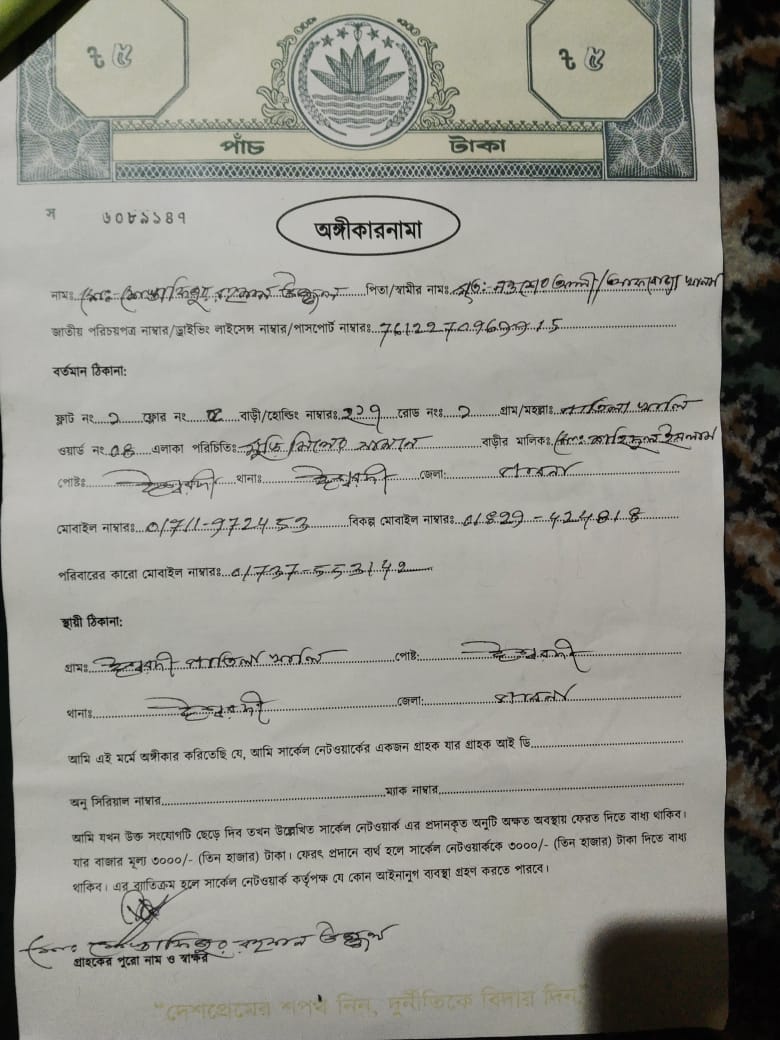 ৳ ৫ ৳ ৫
পাঁচ টাকা
স ৬০৮৯১৪৭
অঙ্গীকারনামা
নামঃ মোঃ মোস্তাফিজুর রহমান উজ্জ্বল পিতা/স্বামীর নামঃ মৃত: নওশের আলী/
জাতীয় পরিচয়পত্র নাম্বার/ড্রাইভিং লাইসেন্স নাম্বার/পাসপোর্ট নাম্বারঃ
বর্তমান ঠিকানা:
ফ্লাট নং ২ ফ্লোর নং বাড়ী/হোল্ডিং নাম্বারঃ ২২৭ রোড নংঃ ২ গ্রাম/মহল্লাঃ
ওয়ার্ড নং 08 এলাকা পরিচিতিঃ মুড়ি মিলের সামনে বাড়ীর মালিকঃ মোঃ জহিরুল ইসলাম
পোষ্টঃ ঈশ্বরদী থানাঃ ঈশ্বরদী জেলা: পাবনা
মোবাইল নাম্বারঃ 01711-972453 বিকল্প মোবাইল নাম্বারঃ 01829-424818
পরিবারের কারো মোবাইল নাম্বারঃ 01737-553142
স্থায়ী ঠিকানা:
গ্রামঃ ঈশ্বরদী পোষ্ট: ঈশ্বরদী
থানাঃ ঈশ্বরদী জেলা: পাবনা
আমি এই মর্মে অঙ্গীকার করিতেছি যে, আমি সার্কেল নেটওয়ার্কের একজন গ্রাহক যার গ্রাহক আই ডি
অনু সিরিয়াল নাম্বার ম্যাক নাম্বার
আমি যখন উক্ত সংযোগটি ছেড়ে দিব তখন উল্লেখিত সার্কেল নেটওয়ার্ক এর প্রদানকৃত অনুটি অক্ষত অবস্থায় ফেরত দিতে বাধ্য থাকিব।
যার বাজার মূল্য ৩০০০/- (তিন হাজার) টাকা। ফেরৎ প্রদানে ব্যর্থ হলে সার্কেল নেটওয়ার্ককে ৩০০০/- (তিন হাজার) টাকা দিতে বাধ্য
থাকিব। এর ব্যতিক্রম হলে সার্কেল নেটওয়ার্ক কর্তৃপক্ষ যে কোন আইনানুগ ব্যবস্থা গ্রহণ করতে পারবে।
মোঃ মোস্তাফিজুর রহমান উজ্জ্বল
গ্রাহকের পুরো নাম ও স্বাক্ষর
"দেশপ্রেমের শপথ নিন, দুর্নীতিকে বিদায় দিন"